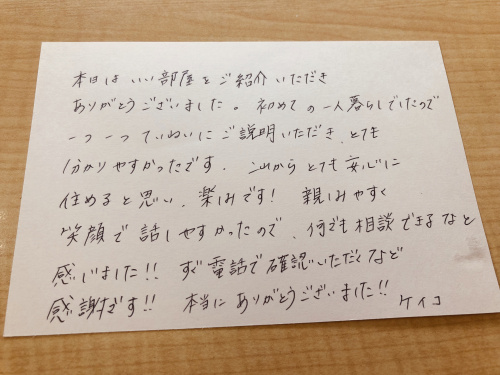 本日は いい部屋をご紹介いただき
ありがとうございました。初めての一人暮らしでしたので
一つ一つていねいにご説明いただき、とても
分かりやすかったです。これからとても安心に
住めると思い、楽しみです! 親しみやすく
笑顔で話しやすかったので、何でも相談できるなと
感じました!! すぐ電話で確認いただくなど
感謝です!! 本当にありがとうございました!!
ケイコ